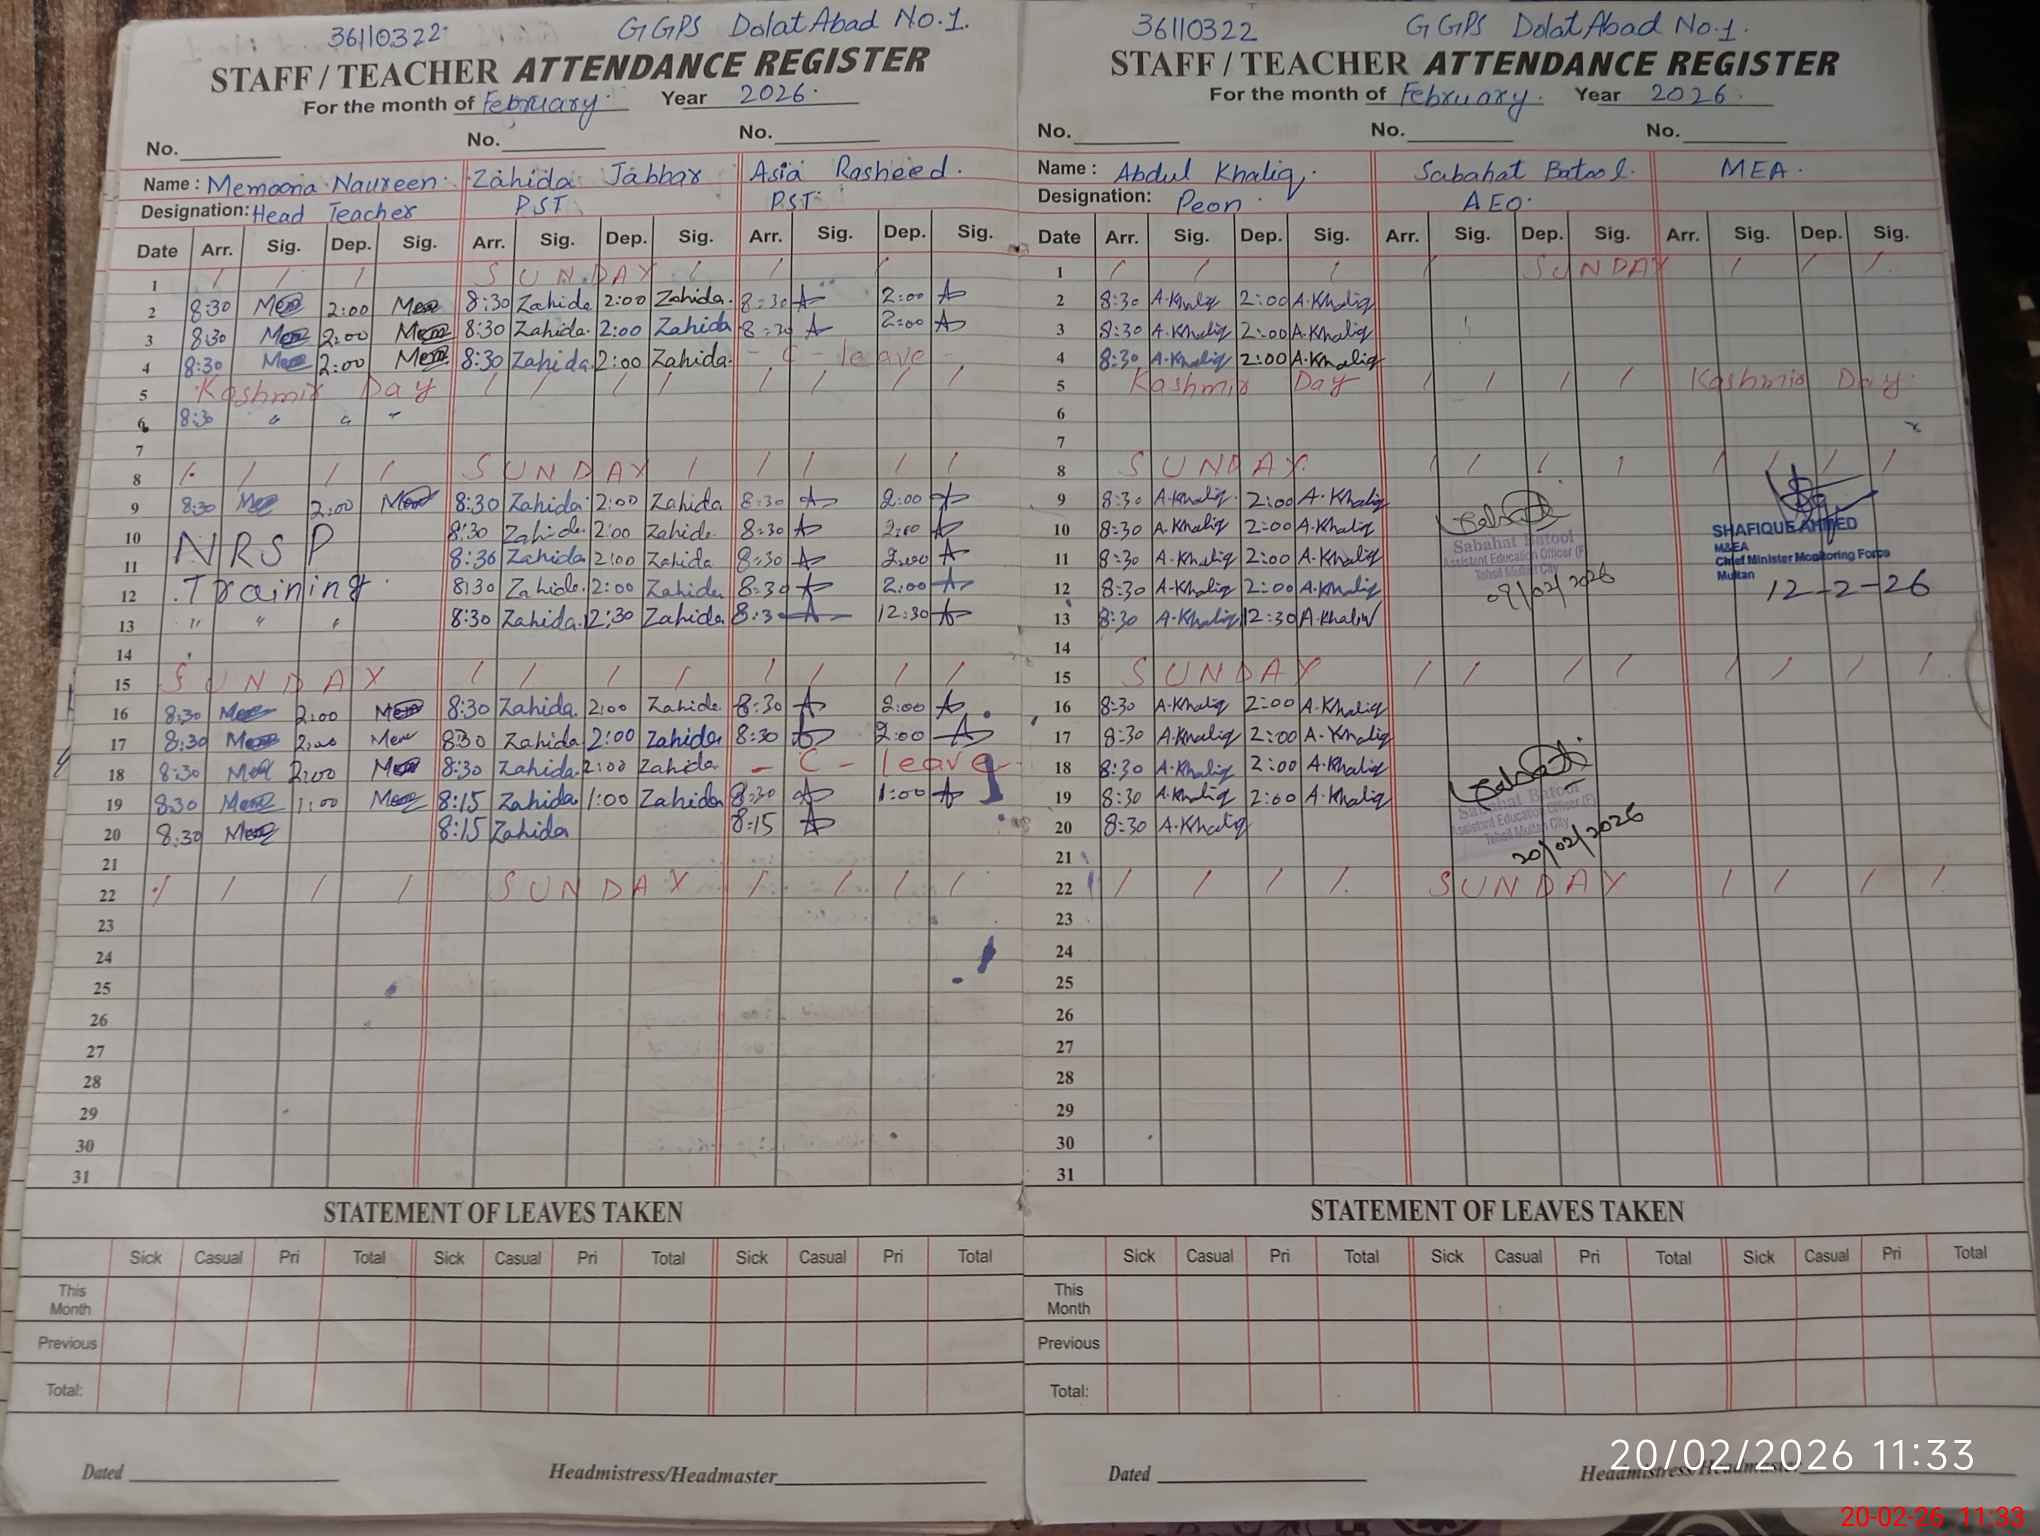 36110322. GGPS Dolat Abad No.1.
STAFF / TEACHER ATTENDANCE REGISTER
For the month of February. Year 2026.
No. No. No.
Name: Memoona Naureen. Zahida Jabbar Asia Rasheed.
Designation: Head Teacher PST PST
Date Arr. Sig. Dep. Sig. Arr. Sig. Dep. Sig. Arr. Sig. Dep. Sig.
1 / / / SUNDAY / / /
2 8:30 2:00 8:30 Zahida 2:00 Zahida. 8:30 2:00
3 8:30 2:00 8:30 Zahida. 2:00 Zahida 8:30 2:00
4 8:30 2:00 8:30 Zahida. 2:00 Zahida. - C - leave -
5 Kashmir Day / / / / / / / /
6 8:30 " " "
7
8 / / / / SUNDAY / / / / /
9 8:30 2:00 8:30 Zahida 2:00 Zahida 8:30 2:00
10 NRSP 8:30 Zahida. 2:00 Zahida. 8:30 2:00
11 8:30 Zahida 2:00 Zahida 8:30 2:00
12 Training. 8:30 Zahida. 2:00 Zahida 8:30 2:00
13 " " " 8:30 Zahida. 12:30 Zahida 8:30 12:30
14
15 SUNDAY / / / / / / / /
16 8:30 2:00 8:30 Zahida. 2:00 Zahida. 8:30 2:00
17 8:30 2:00 830 Zahida 2:00 Zahida 8:30 2:00
18 8:30 2:00 8:30 Zahida. 2:00 Zahida. - C - leave -
19 8:30 1:00 8:15 Zahida 1:00 Zahida 8:30 1:00
20 8:30 8:15 Zahida 8:15
21
22 / / / / SUNDAY / / / /
23
24
25
26
27
28
29
30
31
STATEMENT OF LEAVES TAKEN
Sick Casual Pri Total Sick Casual Pri Total Sick Casual Pri Total
This Month
Previous
Total:
Dated Headmistress/Headmaster
36110322 GGPS Dolat Abad No.1.
STAFF / TEACHER ATTENDANCE REGISTER
For the month of February. Year 2026.
No. No. No.
Name: Abdul Khaliq. Sabahat Batool. MEA.
Designation: Peon. AEO.
Date Arr. Sig. Dep. Sig. Arr. Sig. Dep. Sig. Arr. Sig. Dep. Sig.
1 / / / / SUNDAY / / /
2 8:30 A.Khaliq 2:00 A.Khaliq
3 8:30 A.Khaliq 2:00 A.Khaliq
4 8:30 A.Khaliq 2:00 A.Khaliq
5 Kashmir Day / / / / Kashmir Day.
6
7
8 SUNDAY. / / / / / / / /
9 8:30 A.Khaliq. 2:00 A.Khaliq
10 8:30 A.Khaliq 2:00 A.Khaliq
11 8:30 A.Khaliq 2:00 A.Khaliq
12 8:30 A.Khaliq 2:00 A.Khaliq
13 8:30 A.Khaliq 12:30 A.Khaliq
Sabahat Batool
Assistant Education Officer (F)
Tehsil Multan City
09/02/2026
SHAFIQUE AHMED
M&EA
Chief Minister Monitoring Force
Multan
12-2-26
14
15 SUNDAY / / / / / / / /
16 8:30 A.Khaliq 2:00 A.Khaliq
17 8:30 A.Khaliq 2:00 A.Khaliq
18 8:30 A.Khaliq 2:00 A.Khaliq
19 8:30 A.Khaliq 2:00 A.Khaliq
20 8:30 A.Khaliq
Sabahat Batool
Assistant Education Officer (F)
Tehsil Multan City
20/02/2026
21
22 / / / / SUNDAY / / / /
23
24
25
26
27
28
29
30
31
STATEMENT OF LEAVES TAKEN
Sick Casual Pri Total Sick Casual Pri Total Sick Casual Pri Total
This Month
Previous
Total:
Dated Headmistress/Headmaster
20/02/2026 11:33
20-02-26 11:33